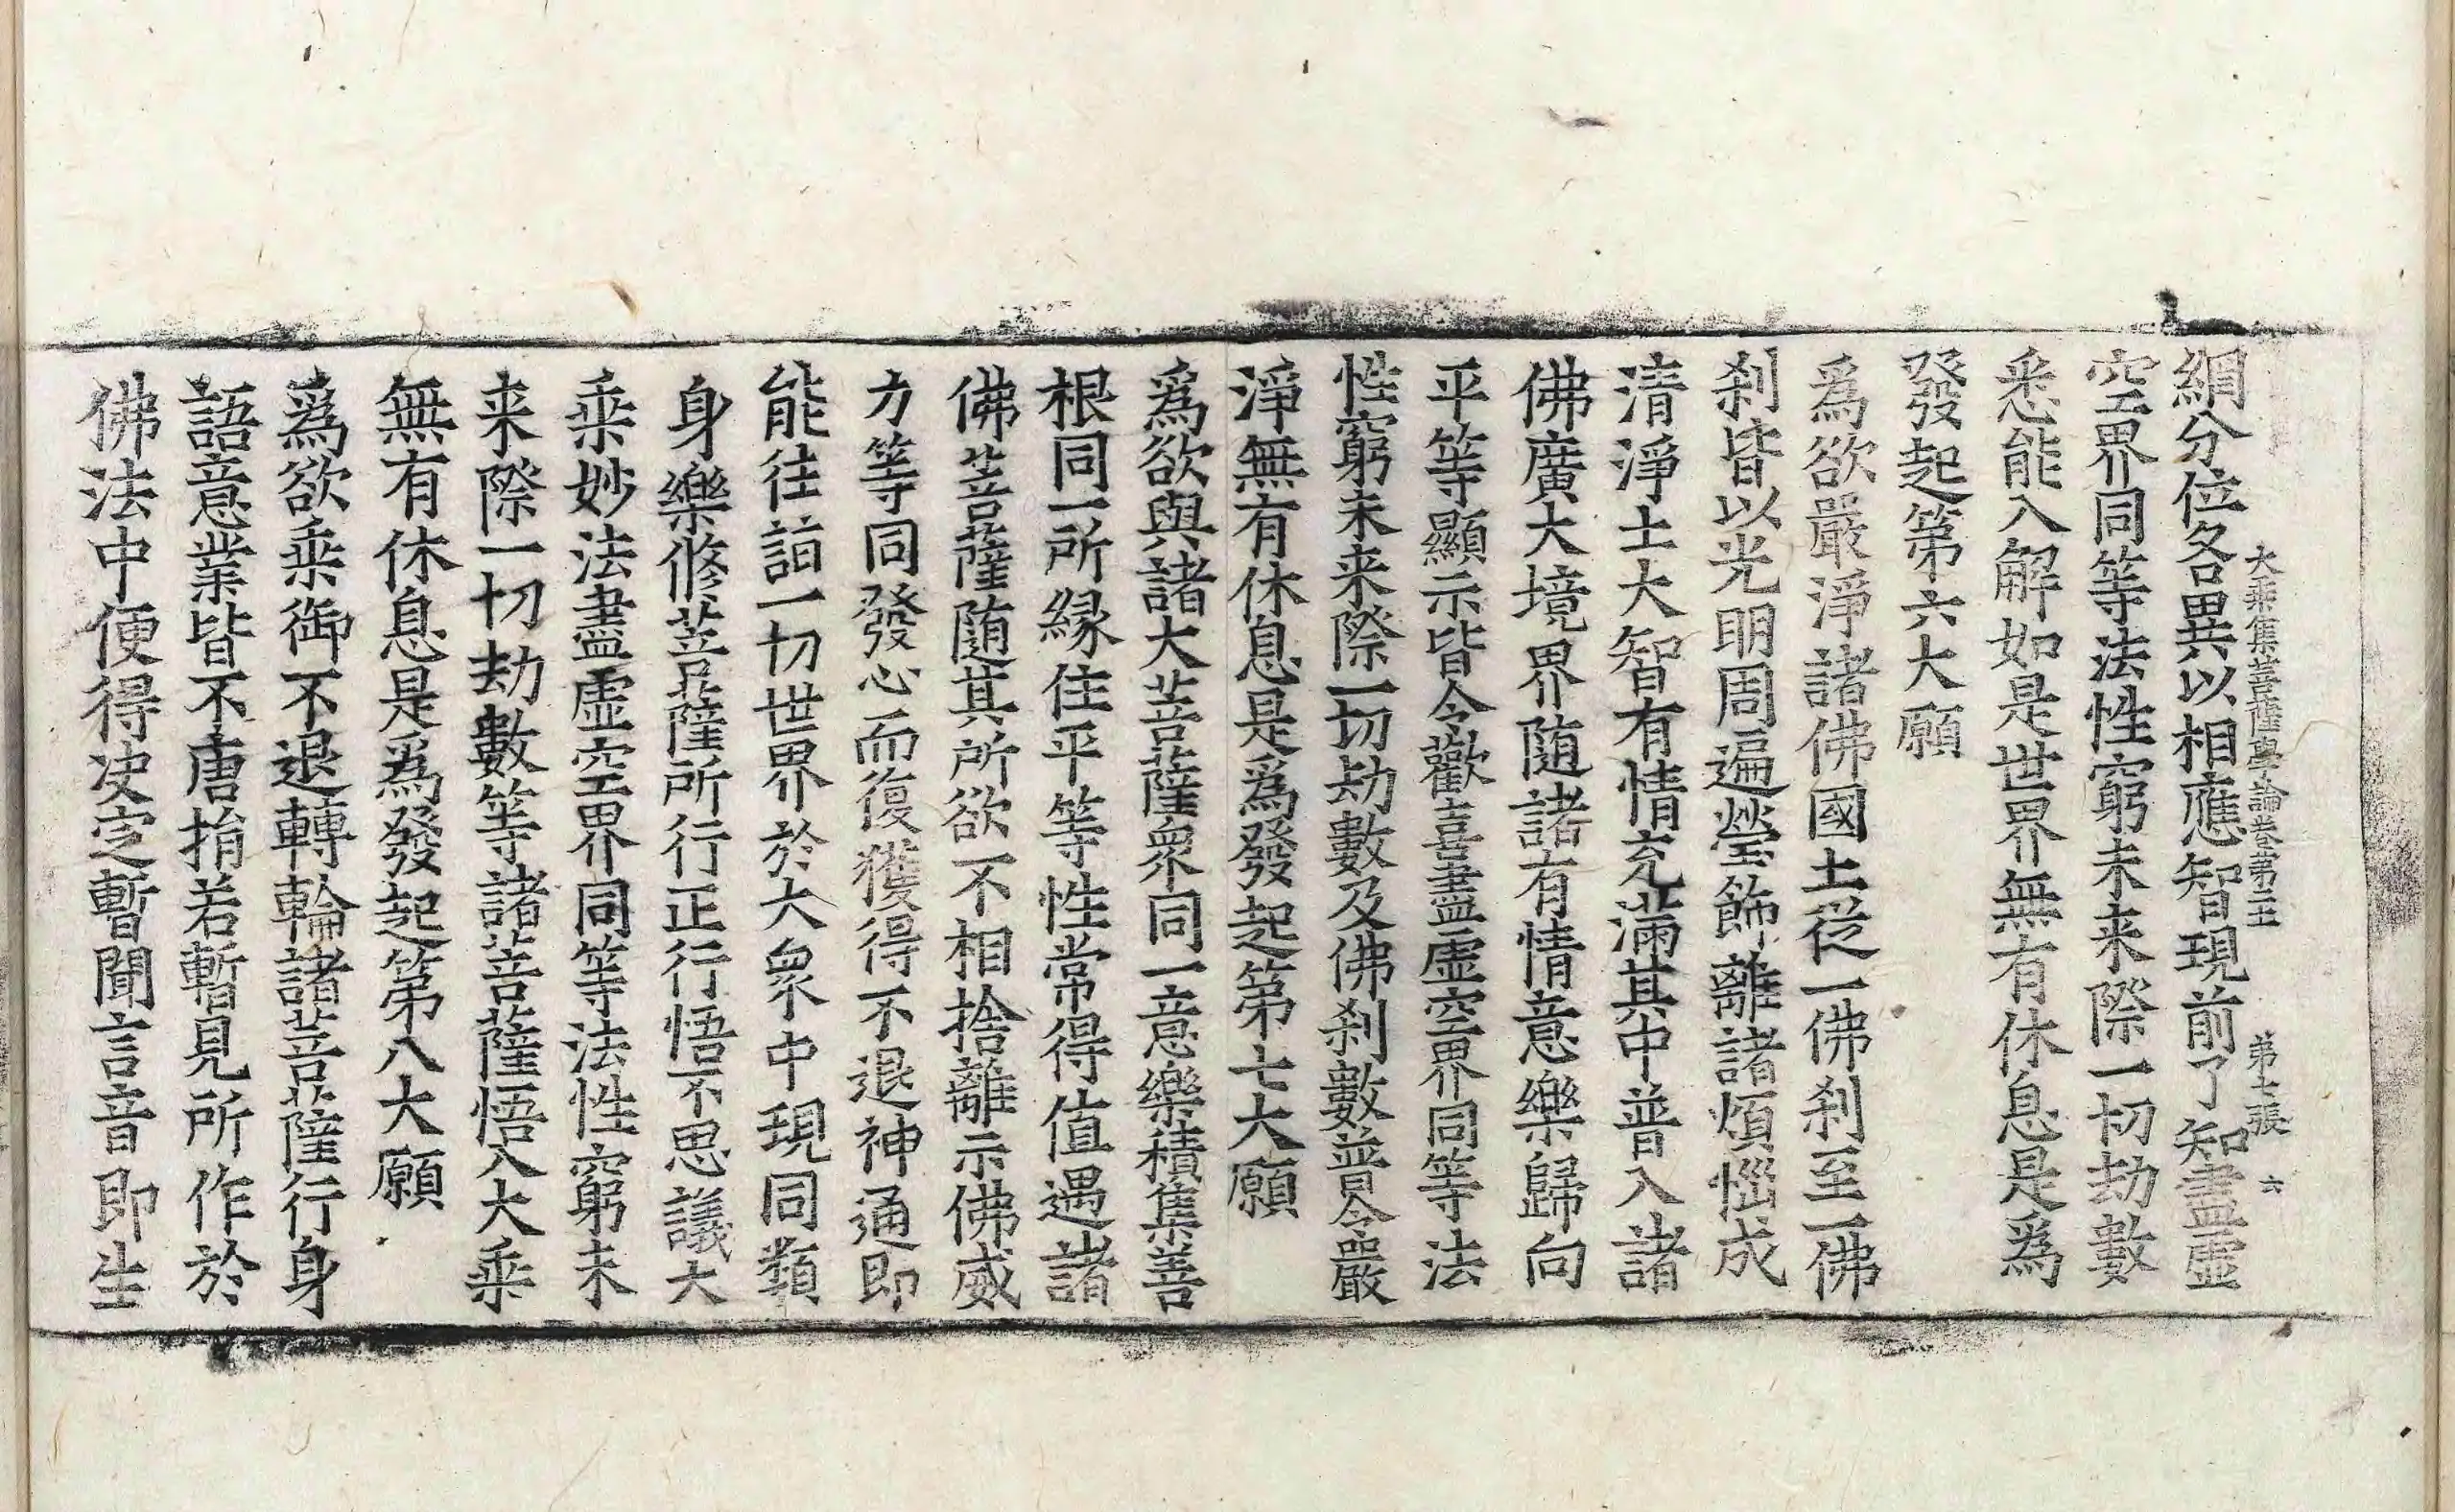 大乘集菩薩學論卷第二　第七張　六
網分位各異以相應智現前了知盡虛
空界同等法性窮未来際一切劫數
悉能入解如是世界無有休息是爲
發起第六大願
爲欲嚴淨諸佛國土從一佛刹至一佛
刹皆以光明周遍瑩飾離諸煩惱成
清淨土大智有情充滿其中普入諸
佛廣大境界随諸有情意樂歸向
平等顯示皆令歡喜盡虛空界同等法
性窮未来際一切劫數及佛刹數普令嚴
淨無有休息是爲發起第七大願
爲欲與諸大菩薩衆同一意樂積集善
根同一所縁住平等性常得值遇諸
佛菩薩随其所欲不相捨離示佛威
力等同發心而復獲得不退神通即
能往詣一切世界於大衆中現同類
身樂修菩薩所行正行悟不思議大
乘妙法盡虛空界同等法性窮未
来際一切劫數等諸菩薩悟入大乘
無有休息是爲發起第八大願
爲欲乘御不退轉輪諸菩薩行身
語意業皆不唐捐若暫見所作於
佛法中便得决定暫聞言音即生